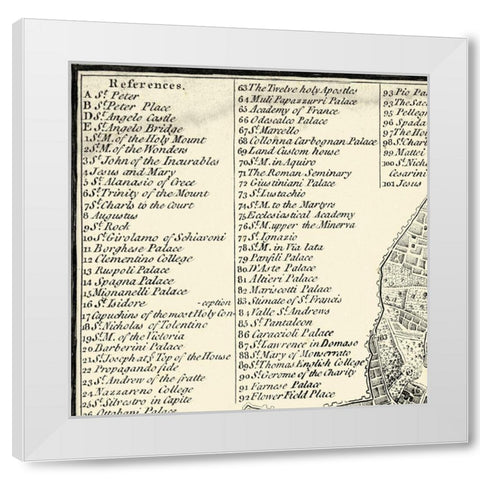 References.
A St. Peter
B St. Peter Place
D St. Angelo Castle
E St. Angelo Bridge
1 St. M. of the Holy Mount
2 St. M. of the Wonders
3 St. John of the Incurables
4 Jesus and Mary
5 St. Atanasio of Grece
6 St. Trinity of the Mount
7 St. Charls to the Court
8 Augustus
9 St. Rock
10 St. Girolamo of Schiavoni
11 Borghese Palace
12 Clementino College
13 Ruspoli Palace
14 Spagna Palace
15 Mignanelli Palace
16 St. Isidore -ception
17 Capuchins of the most Holy Con-
18 St. Nicholas of Tolentino
19 St. M. of the Victoria
20 Barberini Palace
21 St. Joseph at ye. Top of the House
22 Propagando fide
23 St. Andrew of the fratte
24 Nazzareno College
25 St. Silvestro in Capite
26 Ottoboni Palace
63 The Twelve holy Apostles
64 Muti Papazzurri Palace
65 Academy of France
66 Odescalco Palace
67 St. Marcello
68 Collonna Carbognan Palace
69 Land Custom house
70 St. M. in Aquiro
71 The Roman Seminary
72 Giustiniani Palace
74 St. M. to the Martyrs
75 Ecclesiastical Academy
76 St. M. upper the Minerva
77 St. Ignazio
78 St. M. in Via lata
79 Panfili Palace
80 D'Aste Palace
81 Altieri Palace
82 Mariscotti Palace
83 Stimate of St. Francis
84 Valle St. Andrews
85 St. Pantaleon
86 Caraccioli Palace
87 St. Lawrence in Domaso
88 St. Mary of Monserrato
89 St. Thomas English College
90 St. Gerome of the Charity
91 Farnese Palace
92 Flower Field Place
93 Pio Pa
94 The Sac
95 Pellegr
96 Spada
97 The Ho
98 St. Charl
99 Mattei
100 St. Nich
Cesarini
101 Jesus